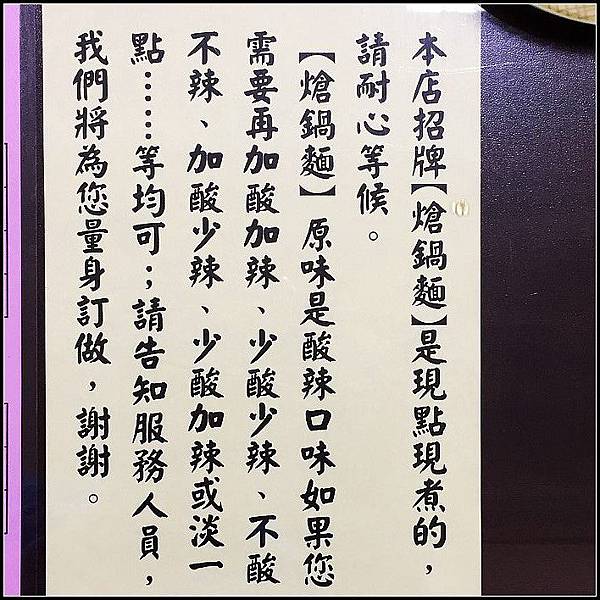 本店招牌【熗鍋麵】是現點現煮的，
請耐心等候。
【熗鍋麵】原味是酸辣口味如果您
需要再加酸加辣、少酸少辣、不酸
不辣、加酸少辣、少酸加辣或淡一
點……等均可；請告知服務人員，
我們將為您量身訂做，謝謝。